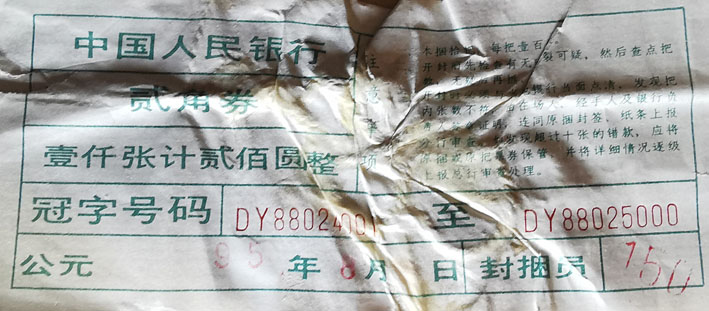 中国人民银行
贰角券
壹仟张计贰佰圆整
注意事项
本捆拾把，每把壹百
开封前先检查有无 裂可疑，然后查点把
数，无
当面点清，发现把
内张数不符，由在场人、经手人及银行负
证明，连同原捆封签、纸条上报
发行 发现超过十张的错款，应将
原捆 把票券保管，并将详细情况逐级
上报总行审查处理。
冠字号码 DY88024001 至 DY88025000
公元 95 年 8 月 日 封捆员 150